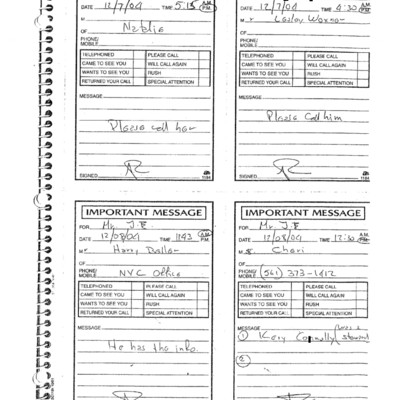 DATE 12/7/04 TIME 5:15 A.M. P.M.
M
OF Natalie
PHONE/
MOBILE
TELEPHONED PLEASE CALL
CAME TO SEE YOU WILL CALL AGAIN
WANTS TO SEE YOU RUSH
RETURNED YOUR CALL SPECIAL ATTENTION
MESSAGE
Please call her
SIGNED
1184
DATE 12/7/04 TIME 4:30 A.M. P.M.
M
OF
PHONE/
MOBILE
TELEPHONED PLEASE CALL
CAME TO SEE YOU WILL CALL AGAIN
WANTS TO SEE YOU RUSH
RETURNED YOUR CALL SPECIAL ATTENTION
MESSAGE
Please Call him
SIGNED
1184
IMPORTANT MESSAGE
FOR Mr. J.E
DATE 12/08/04 TIME 1143 A.M. P.M.
M Harry
OF
PHONE/
MOBILE NYC Office
TELEPHONED PLEASE CALL
CAME TO SEE YOU WILL CALL AGAIN
WANTS TO SEE YOU RUSH
RETURNED YOUR CALL SPECIAL ATTENTION
MESSAGE
He has the info.
IMPORTANT MESSAGE
FOR Mr. J.E
DATE 12/08/04 TIME 12:30 A.M. P.M.
M S Cheri
OF
PHONE/
MOBILE (561) 373-1412
TELEPHONED PLEASE CALL
CAME TO SEE YOU WILL CALL AGAIN
WANTS TO SEE YOU RUSH
RETURNED YOUR CALL SPECIAL ATTENTION
MESSAGE
① Connolly
②